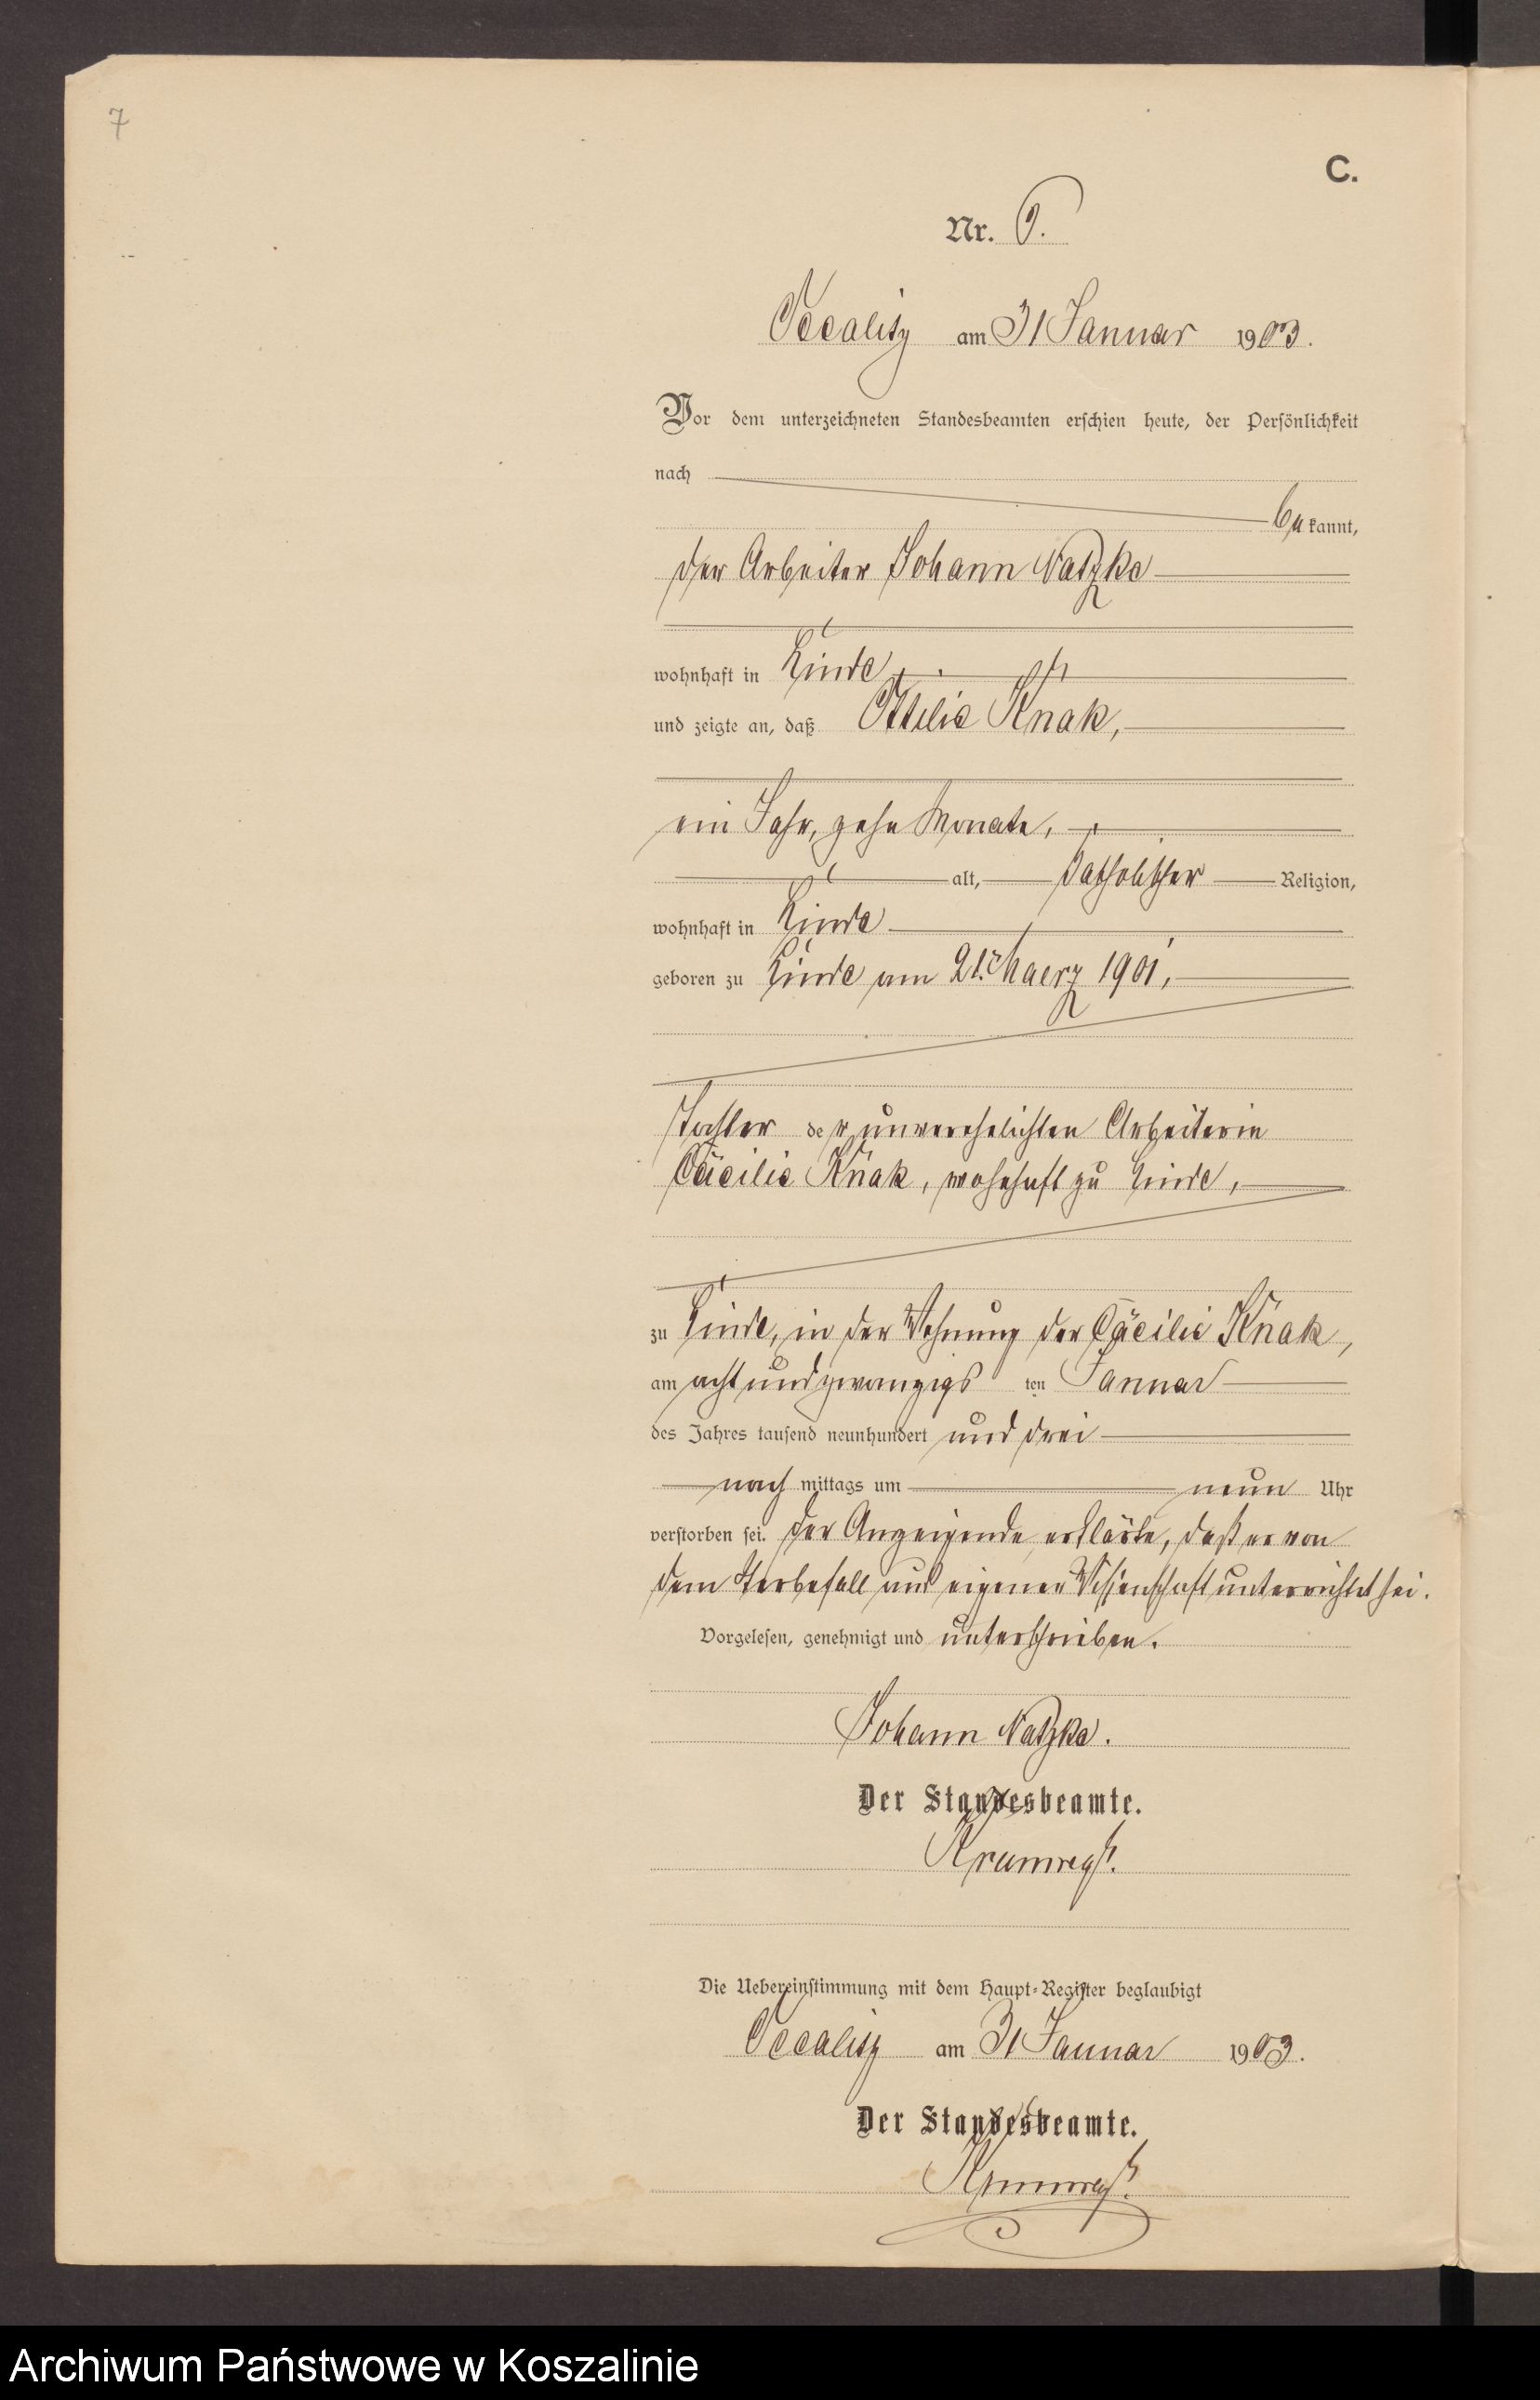 7
C.
Nr. 6.
Occalitz am 31 Januar 1903.
Vor dem unterzeichneten Standesbeamten erschien heute, der Persönlichkeit
nach
bekannt,
der Arbeiter Johann Natzke
wohnhaft in Linde
und zeigte an, daß Ottilie Knak,
ein Jahr, zehn Monate,
alt, katholischer Religion,
wohnhaft in Linde
geboren zu Linde am 21. Maerz 1901,
Tochter der unverehelichten Arbeiterin
Cäcilie Knak, wohnhaft zu Linde,
zu Linde, in der Wohnung der Cäcilie Knak,
am achtundzwanzigsten Januar
des Jahres tausend neunhundert und drei
nachmittags um neun Uhr
verstorben sei. Der Anzeigende erklärte, daß er von
dem Sterbefall aus eigener Wissenschaft unterrichtet sei.
Vorgelesen, genehmigt und unterschrieben.
Johann Natzke.
Der Standesbeamte.
Die Uebereinstimmung mit dem Haupt-Register beglaubigt
Occalitz am 31 Januar 1903.
Der Standesbeamte.
Archiwum Państwowe w Koszalinie